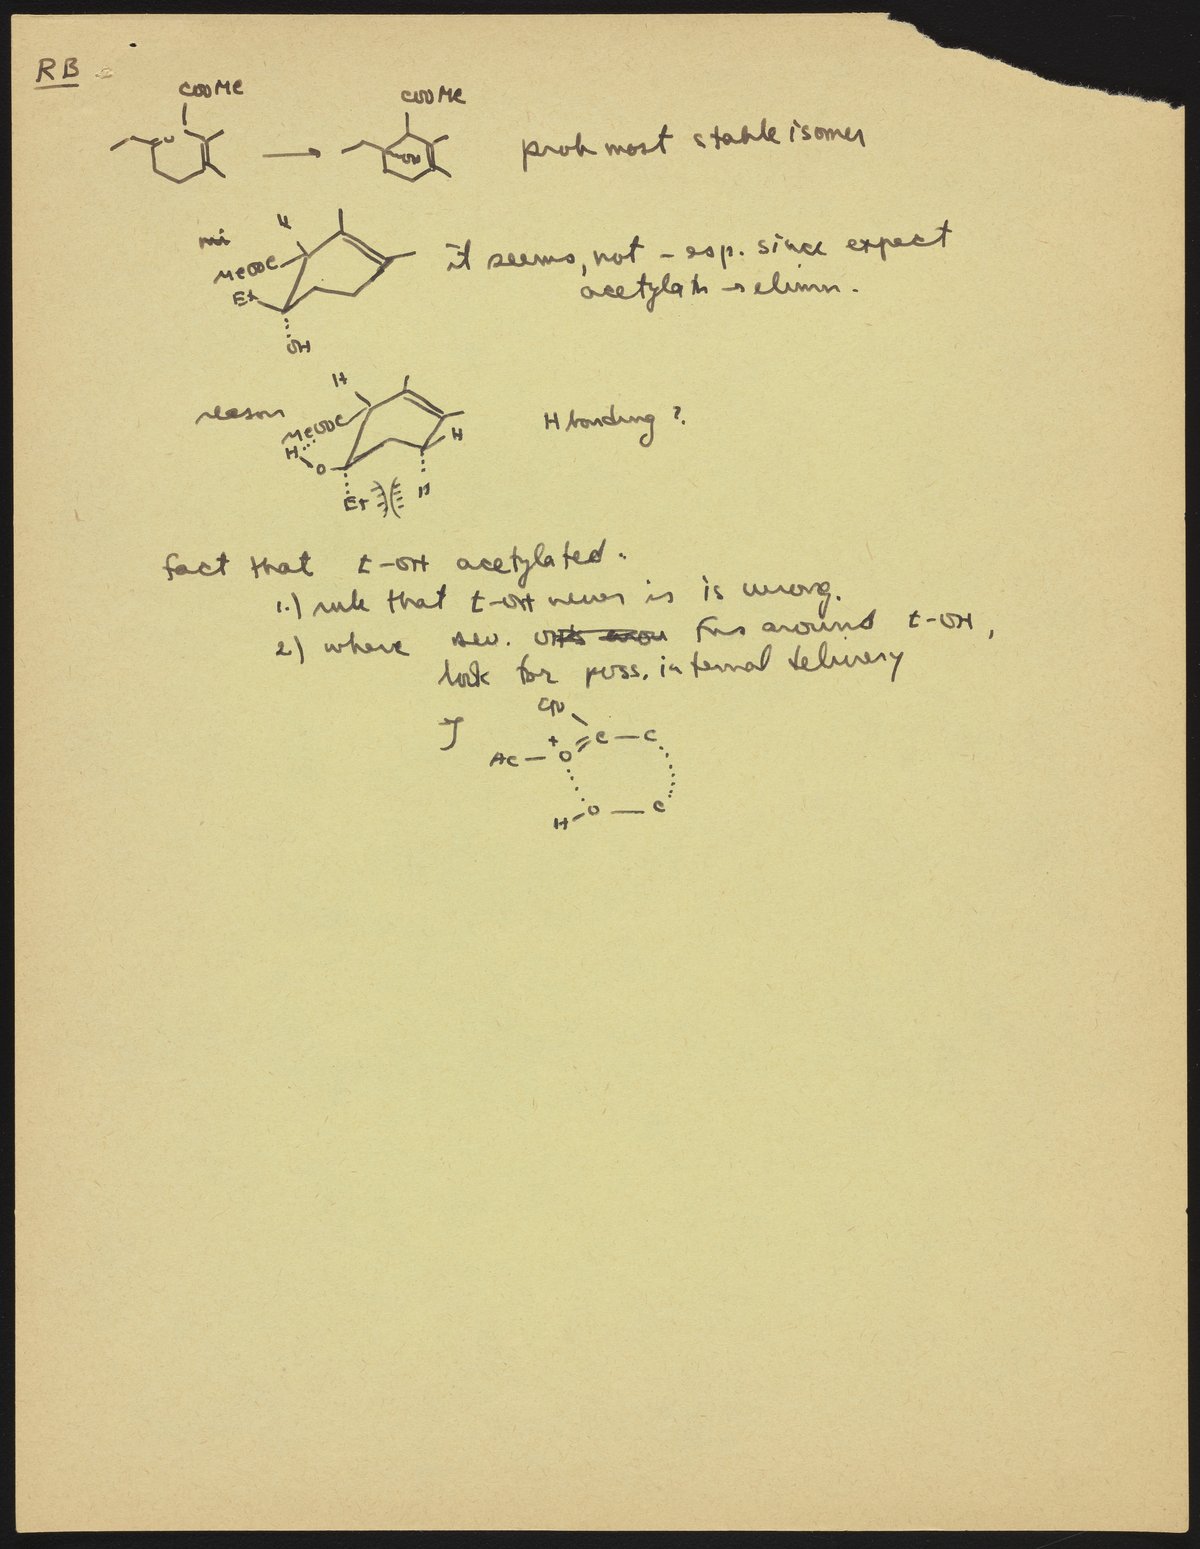 RB
COOMe
COOMe
OH
prob most stable isomer
H
MeOOC
Et
OH
it seems, not - esp. since expect
acetylatn → elimn.
reason
H
MeOOC
H
O
H
Et
H
H bonding?
fact that t-OH acetylated.
1.) rule that t-OH never is is wrong.
2) where sev. fns around t-OH,
look for poss. internal delivery
C — C
Ac — O +
H - O — C